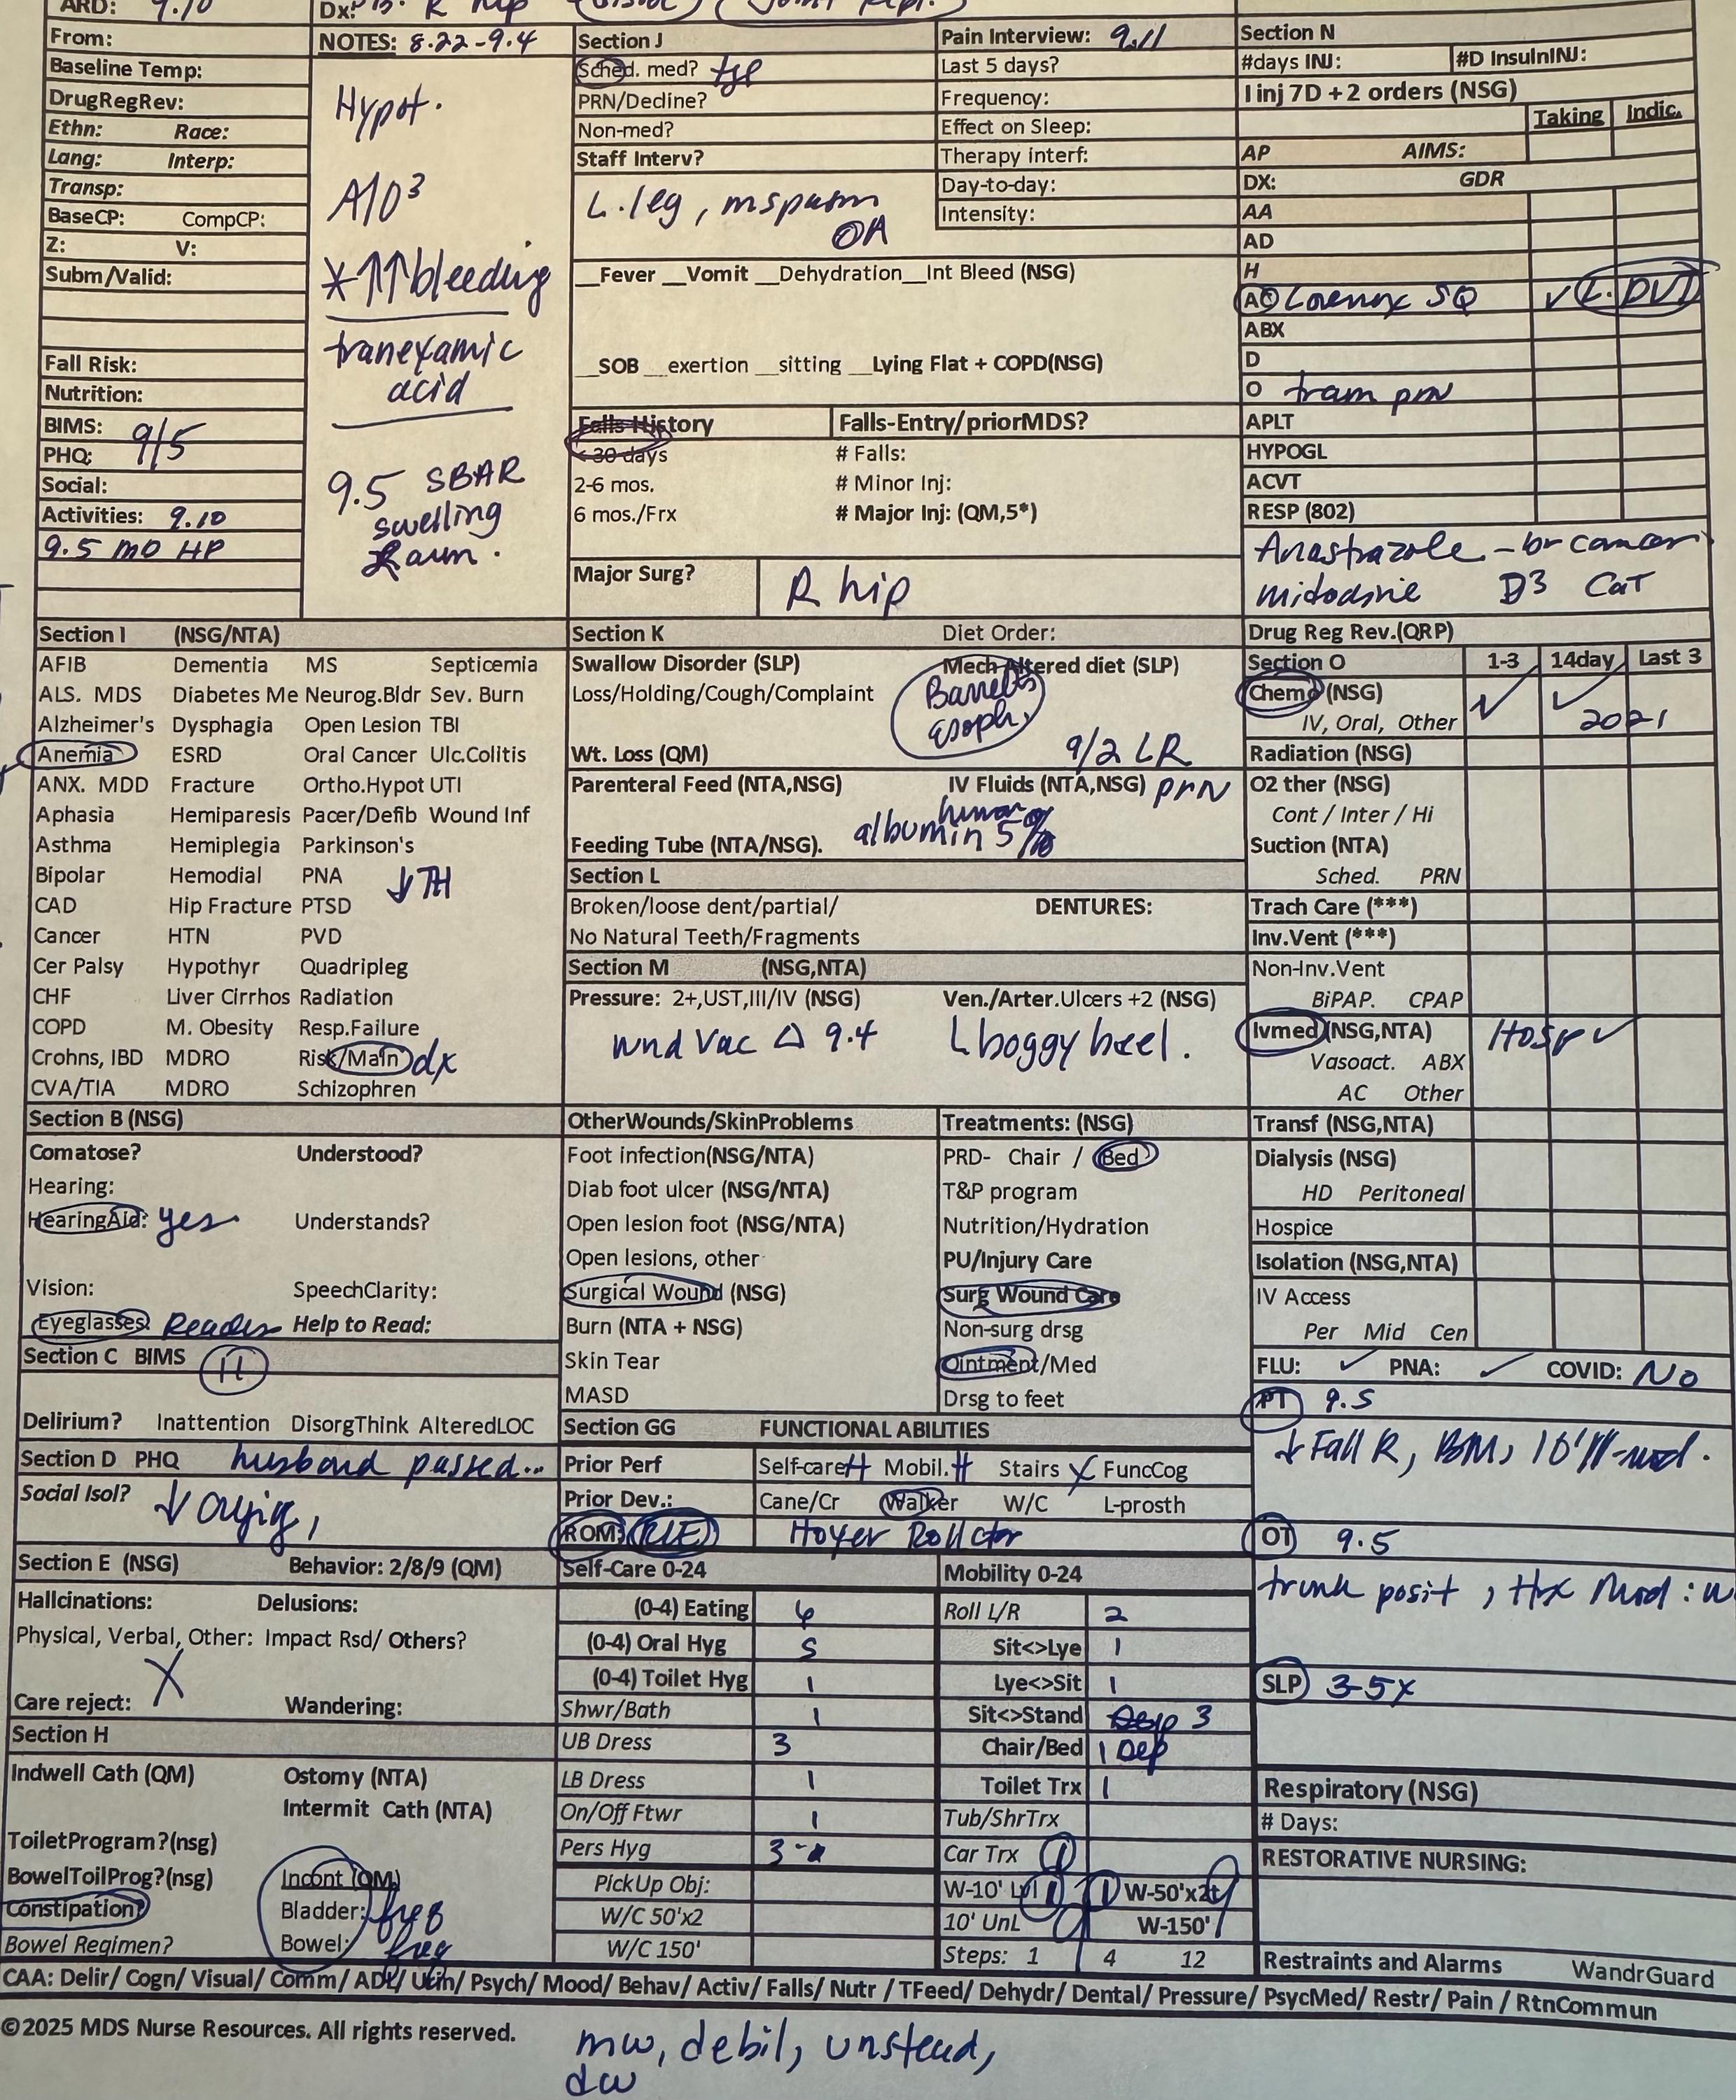 ARD: 9.10
Dx: R hip
From:
Baseline Temp:
DrugRegRev:
Ethn: Race:
Lang: Interp:
Transp:
BaseCP: CompCP:
Z: V:
Subm/Valid:
Fall Risk:
Nutrition:
BIMS: 9/5
PHQ:
Social:
Activities: 9.10
9.5 MD HP
NOTES: 8.22-9.4
Hypot.
A/O³
*↑↑bleeding
tranexamic
acid
9.5 SBAR
swelling
arm.
Section J
Sched. med?
PRN/Decline?
Non-med?
Staff Interv?
L. leg, mspasm
OA
Pain Interview: 9.11
Last 5 days?
Frequency:
Effect on Sleep:
Therapy interf:
Day-to-day:
Intensity:
__Fever __Vomit __Dehydration__Int Bleed (NSG)
__SOB __exertion __sitting __Lying Flat + COPD(NSG)
Falls History
< 30 days
2-6 mos.
6 mos./Frx
Falls-Entry/priorMDS?
# Falls:
# Minor Inj:
# Major Inj: (QM,5*)
Major Surg? R hip
Section N
#days INJ: #D InsulnINJ:
I inj 7D + 2 orders (NSG)
Taking Indic.
AP AIMS:
DX: GDR
AA
AD
H
AC Lovenox SQ ✓ L. DVT
ABX
D
O tram prn
APLT
HYPOGL
ACVT
RESP (802)
Anastrazole - br cancer
midodrine D3 CaT
Drug Reg Rev.(QRP)
Section I (NSG/NTA)
AFIB Dementia MS Septicemia
ALS. MDS Diabetes Me Neurog.Bldr Sev. Burn
Alzheimer's Dysphagia Open Lesion TBI
Anemia ESRD Oral Cancer Ulc.Colitis
ANX. MDD Fracture Ortho.Hypot UTI
Aphasia Hemiparesis Pacer/Defib Wound Inf
Asthma Hemiplegia Parkinson's
Bipolar Hemodial PNA ↓TH
CAD Hip Fracture PTSD
Cancer HTN PVD
Cer Palsy Hypothyr Quadripleg
CHF Liver Cirrhos Radiation
COPD M. Obesity Resp.Failure
Crohns, IBD MDRO Risk/Maln dx
CVA/TIA MDRO Schizophren
Section K Diet Order:
Swallow Disorder (SLP) Mech Altered diet (SLP)
Loss/Holding/Cough/Complaint Barretts
esoph,
Wt. Loss (QM) 9/2 LR
Parenteral Feed (NTA,NSG) IV Fluids (NTA,NSG) prn
human
Feeding Tube (NTA/NSG). albumin 5%
Section L
Broken/loose dent/partial/ DENTURES:
No Natural Teeth/Fragments
Section M (NSG,NTA)
Pressure: 2+,UST,III/IV (NSG) Ven./Arter.Ulcers +2 (NSG)
wnd vac Δ 9.4 L boggy heel.
Section O 1-3 14day Last 3
Chemo (NSG) ✓ ✓
IV, Oral, Other 2021
Radiation (NSG)
O2 ther (NSG)
Cont / Inter / Hi
Suction (NTA)
Sched. PRN
Trach Care (***)
Inv.Vent (***)
Non-Inv.Vent
BiPAP. CPAP
Ivmed (NSG,NTA) Hosp ✓
Vasoact. ABX
AC Other
Transf (NSG,NTA)
Dialysis (NSG)
HD Peritoneal
Hospice
Isolation (NSG,NTA)
IV Access
Per Mid Cen
FLU: ✓ PNA: ✓ COVID: No
Section B (NSG)
Comatose? Understood?
Hearing:
HearingAid: yes Understands?
Vision: SpeechClarity:
Eyeglasses: Reader Help to Read:
Section C BIMS 11
Delirium? Inattention DisorgThink AlteredLOC
Section D PHQ husband passed...
Social Isol? ↓ crying,
Section E (NSG) Behavior: 2/8/9 (QM)
Hallcinations: Delusions:
Physical, Verbal, Other: Impact Rsd/ Others?
X
Care reject: Wandering:
Section H
Indwell Cath (QM) Ostomy (NTA)
Intermit Cath (NTA)
ToiletProgram?(nsg)
BowelToilProg?(nsg) Incont (QM)
Constipation? Bladder: freq
Bowel Regimen? Bowel: freq
OtherWounds/SkinProblems
Foot infection(NSG/NTA)
Diab foot ulcer (NSG/NTA)
Open lesion foot (NSG/NTA)
Open lesions, other
Surgical Wound (NSG)
Burn (NTA + NSG)
Skin Tear
MASD
Treatments: (NSG)
PRD- Chair / Bed
T&P program
Nutrition/Hydration
PU/Injury Care
Surg Wound Care
Non-surg drsg
Ointment/Med
Drsg to feet
Section GG FUNCTIONAL ABILITIES
Prior Perf Self-care Mobil. Stairs X FuncCog
Prior Dev.: Cane/Cr Walker W/C L-prosth
ROM: RLE Hoyer Rollator
Self-Care 0-24
(0-4) Eating
(0-4) Oral Hyg 5
(0-4) Toilet Hyg 1
Shwr/Bath 1
UB Dress 3
LB Dress 1
On/Off Ftwr 1
Pers Hyg 3
PickUp Obj:
W/C 50'x2
W/C 150'
Mobility 0-24
Roll L/R 2
Sit<>Lye 1
Lye<>Sit 1
Sit<>Stand Dep 3
Chair/Bed 1 Dep
Toilet Trx 1
Tub/ShrTrx
Car Trx 1
W-10' Lvl 1 W-50'x2t
10' UnL W-150'
Steps: 1 4 12
PT 9.5
↓ Fall R, BM, 10' //-mod.
OT 9.5
trunk posit, trx Mod:
SLP 3-5x
Respiratory (NSG)
# Days:
RESTORATIVE NURSING:
Restraints and Alarms WandrGuard
CAA: Delir/ Cogn/ Visual/ Comm/ ADL/ Urin/ Psych/ Mood/ Behav/ Activ/ Falls/ Nutr / TFeed/ Dehydr/ Dental/ Pressure/ PsycMed/ Restr/ Pain / RtnCommun
©2025 MDS Nurse Resources. All rights reserved.
mw, debil, unstead,
dw